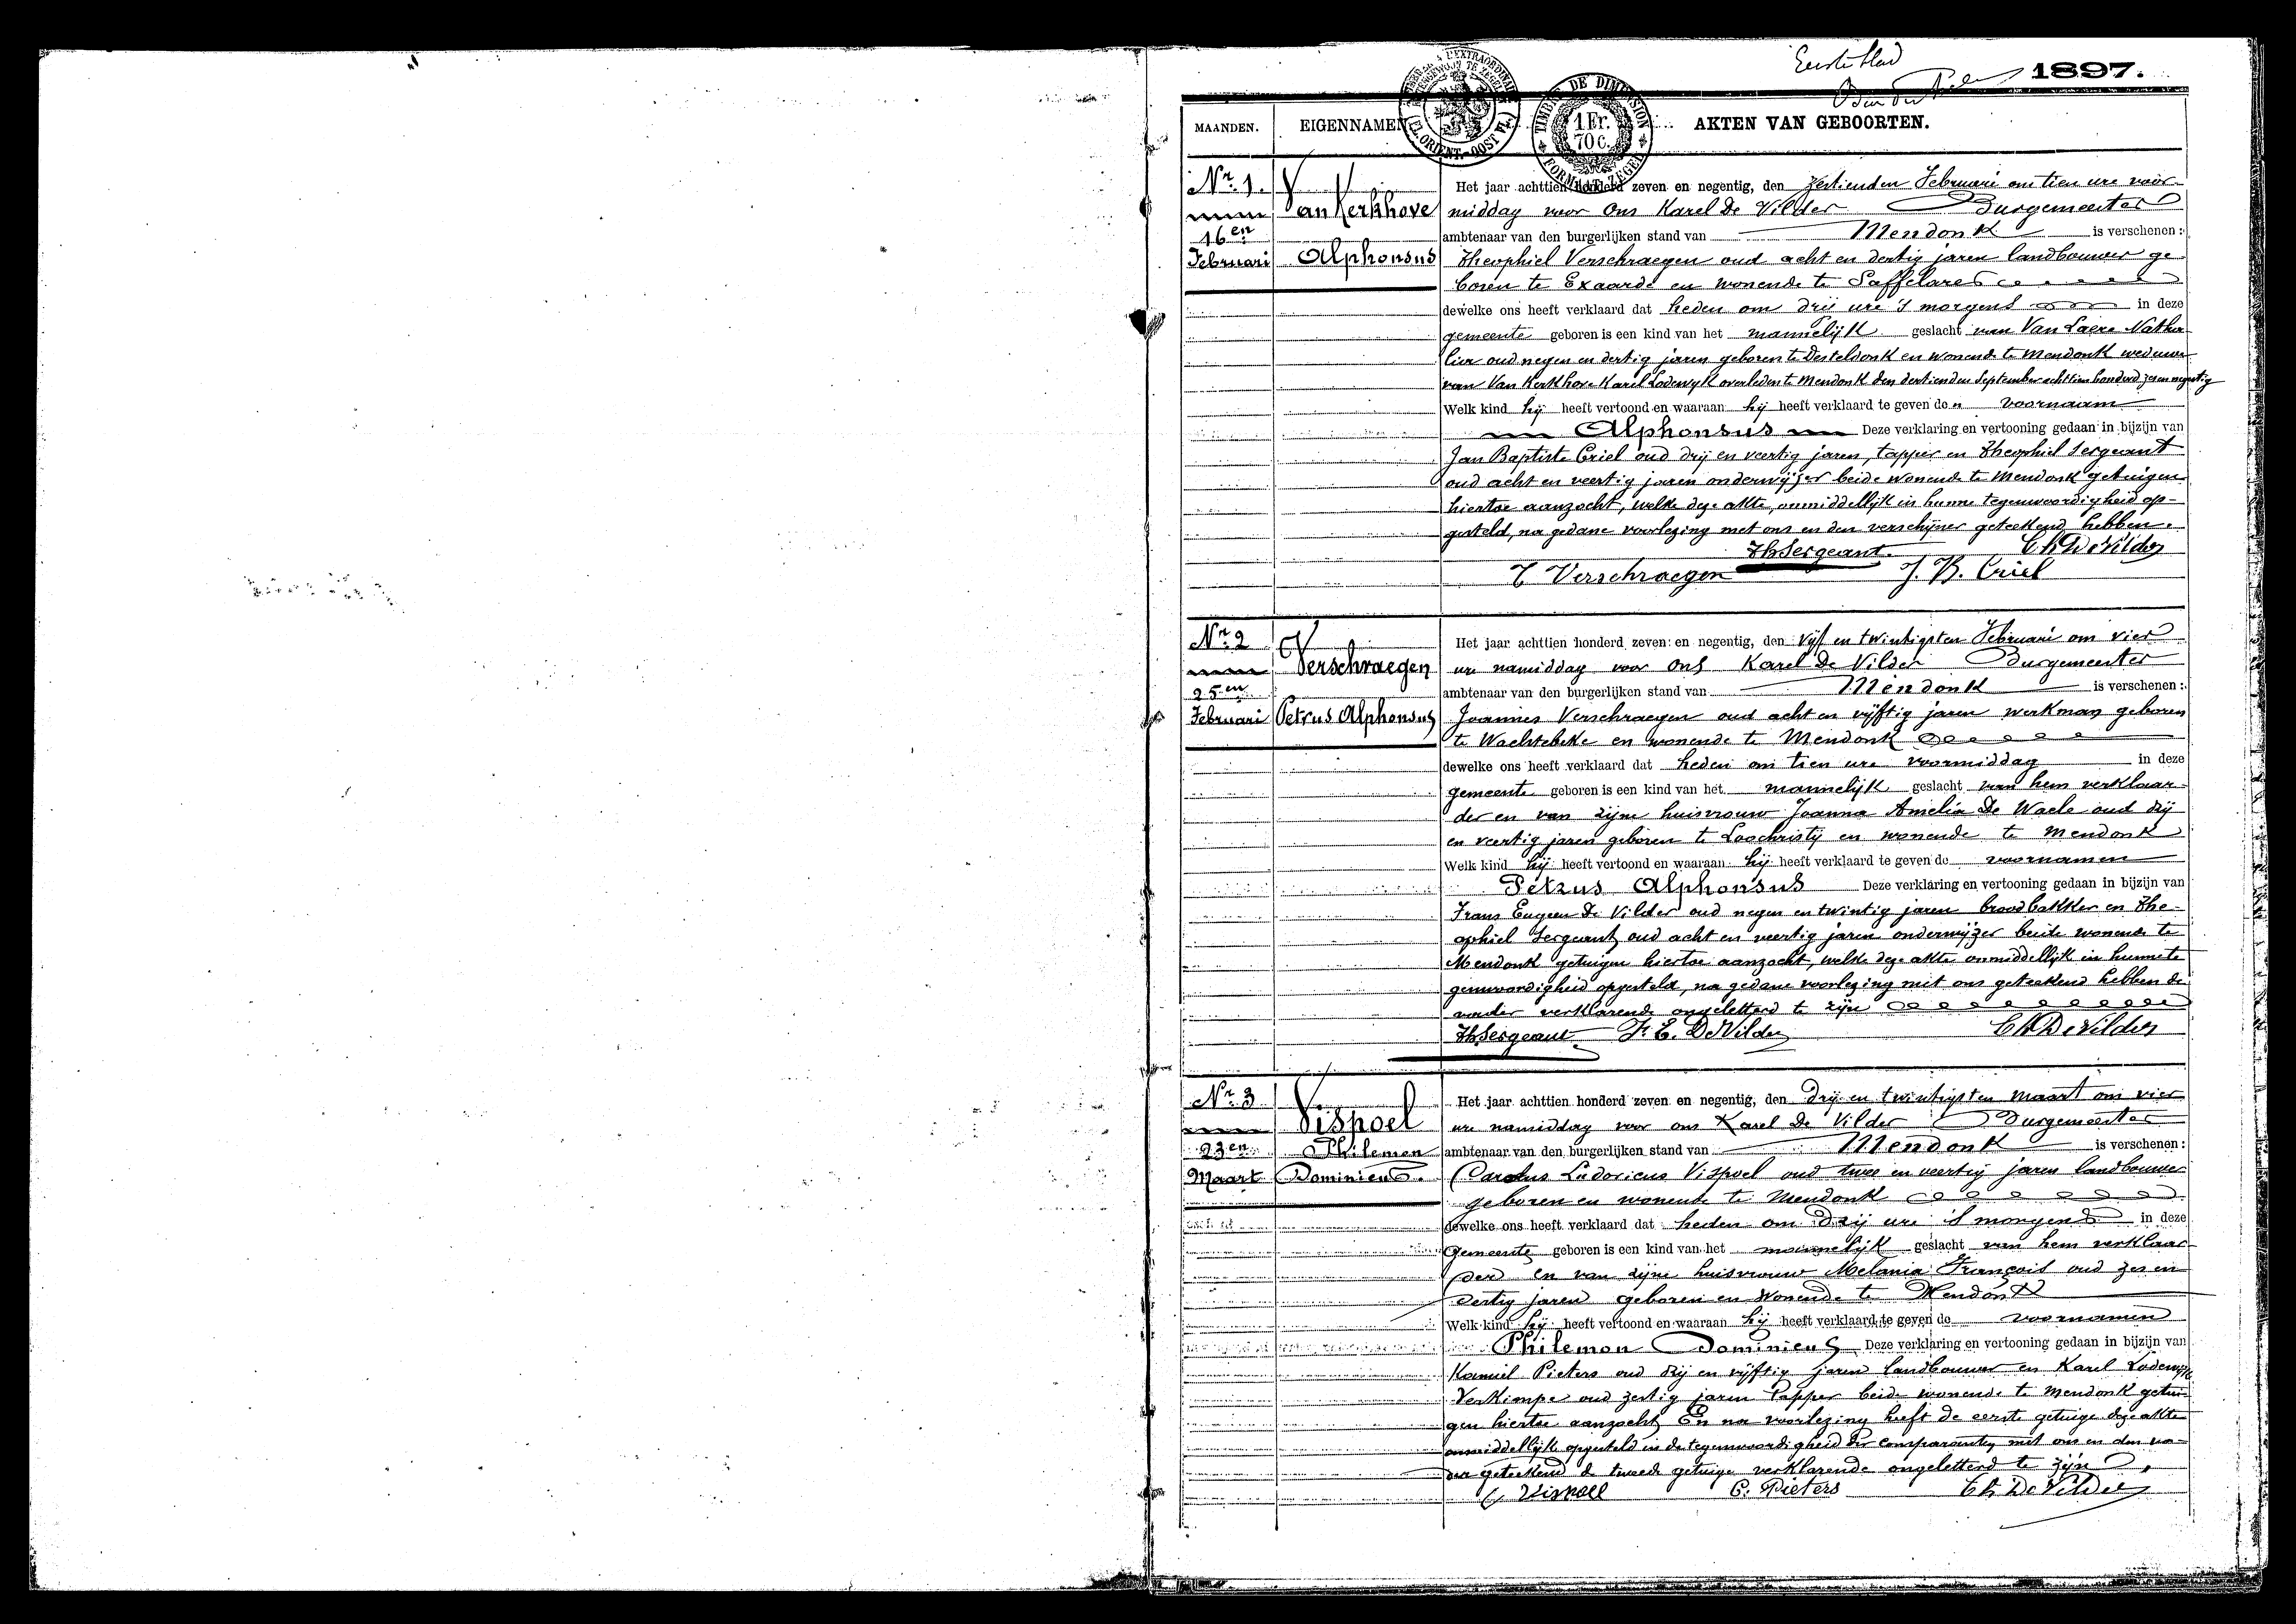 Eerste blad
1897.
MAANDEN. EIGENNAMEN AKTEN VAN GEBOORTEN.
TIMBRE DE DIMENSION
1 Fr. 70 c.
FORMAAT ZEGEL
FL. ORIENT.-OOST VL.
Nr. 1.
16en
Februari
Van Kerkhove
Alphonsus
Het jaar achttien honderd zeven en negentig, den zestienden Februari om tien ure voor-
middag voor Ons Karel De Vilder Burgemeester
ambtenaar van den burgerlijken stand van Mendonk is verschenen:
Theophiel Verschraegen oud acht en dertig jaren landbouwer ge
boren te Exaarde en wonende te Saffelare
dewelke ons heeft verklaard dat heden om drij ure 's morgens in deze
gemeente geboren is een kind van het mannelijk geslacht van Van Laere Natha
lia oud negen en dertig jaren geboren te Desteldonk en wonende te Mendonk weduwe
van Van Kerkhove Karel Lodewyk overleden te Mendonk den dertienden September achttien honderd zes en negentig
Welk kind hij heeft vertoond en waaraan hij heeft verklaard te geven den voornaam
Alphonsus Deze verklaring en vertooning gedaan in bijzijn van
Jan Baptiste Criel oud drij en veertig jaren, tapper en Theophiel Sergeant
oud acht en veertig jaren onderwijzer beide wonende te Mendonk getuigen
hiertoe aanzocht, welke deze akte, onmiddellijk in hunne tegenwoordigheid op-
gesteld, na gedane voorlezing met ons en den verschijner geteekend hebben.
Th Sergeant. Ch De Vilder
T Verschraegen J. B. Criel
Nr. 2
25en
Februari
Verschraegen
Petrus Alphonsus
Het jaar achttien honderd zeven en negentig, den vijf en twintigsten Februari om vier
ure namiddag voor Ons Karel De Vilder Burgemeester
ambtenaar van den burgerlijken stand van Mendonk is verschenen:
Joannes Verschraegen oud acht en vijftig jaren werkman geboren
te Wachtebeke en wonende te Mendonk
dewelke ons heeft verklaard dat heden om tien ure voormiddag in deze
gemeente geboren is een kind van het mannelijk geslacht van hem verklaar-
der en van zijne huisvrouw Joanna Amelia De Waele oud drij
en veertig jaren geboren te Loochristij en wonende te Mendonk
Welk kind hij heeft vertoond en waaraan hij heeft verklaard te geven de voornamen
Petrus Alphonsus Deze verklaring en vertooning gedaan in bijzijn van
Frans Eugeen De Vilder oud negen en twintig jaren broodbakker en The-
ophiel Sergeant oud acht en veertig jaren onderwijzer beide wonende te
Mendonk getuigen hiertoe aanzocht, welke deze akte onmiddellijk in hunne te
genwoordigheid opgesteld, na gedane voorlezing met ons geteekend hebben de
vader verklarende ongeletterd te zijn
Th Sergeant F. E. De Vilder Ch De Vilder
Nr. 3
23en
Maart
Vispoel
Philemon
Dominicus.
Het jaar achttien honderd zeven en negentig, den drij en twintigsten maart om vier
ure namiddag voor ons Karel De Vilder Burgemeester
ambtenaar van den burgerlijken stand van Mendonk is verschenen:
Carolus Ludovicus Vispoel oud twee en veertig jaren landbouwer
geboren en wonende te Mendonk
dewelke ons heeft verklaard dat heden om drij ure 's morgens in deze
gemeente geboren is een kind van het mannelijk geslacht van hem verklaar
der en van zijne huisvrouw Melania François oud zes en
dertig jaren geboren en wonende te Mendonk
Welk kind hij heeft vertoond en waaraan hij heeft verklaard te geven de voornamen
Philemon Dominicus Deze verklaring en vertooning gedaan in bijzijn van
Kamiel Pieters oud drij en vijftig jaren landbouwer en Karel Lodewijk
Verkimpe oud zestig jaren tapper beide wonende te Mendonk getui
gen hiertoe aanzocht En na voorlezing heeft de eerste getuige deze akte
onmiddellijk opgesteld in de tegenwoordigheid der comparanten met ons en den va-
der geteekend de tweede getuige verklarende ongeletterd te zijn.
C Vispoel C. Pieters Ch De Vilder